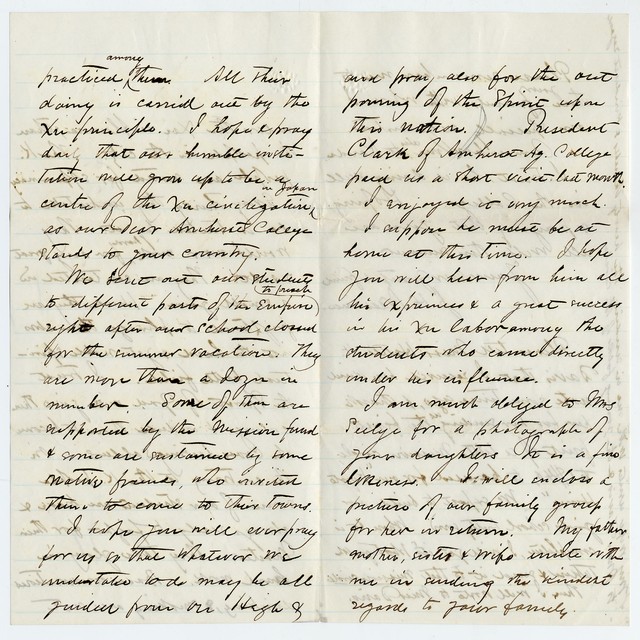 among
practiced them. All their
doing is carried out by the
Xn principle. I hope & pray
daily that our humble insti-
tution will grow up to be a
in Japan
centre of the Xn civilization,
as our Dear Amherst College
stands to your country.
We sent out our students
to preach
to different parts of the Empire
right after our school closed
for the summer vacation. They
are more than a dozen in
number. Some of them are
supported by the mission fund
& some are sustained by some
native friends, who invited
them to come to their towns.
I hope you will ever pray
for us so that whatever we
undertake to do may be all
guided from on High &
and pray also for the out
pouring of the Spirit upon
this nation. President
Clark of Amherst Ag. College
paid us a short visit last month.
I enjoyed it very much.
I suppose he must be at
home at this time. I hope
you will hear from him all
his expriences & a great success
in his Xn labor among the
students who came directly
under his influence.
I am much obliged to Mrs
Seelye for a photograph of
your daughters. It is a fine
likeness. I will enclose a
picture of our family group
for her in return. My father
mother, sister & wife unite with
me in sending the kindest
regards to your family.